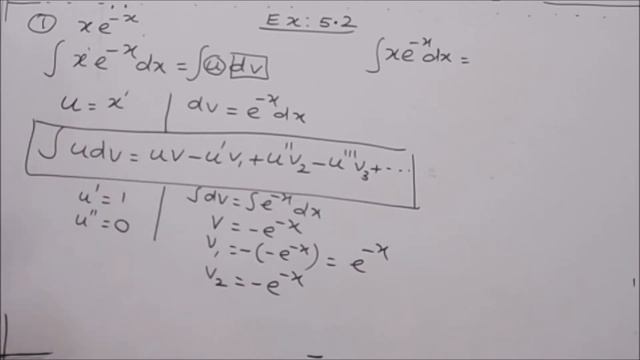 ① xe^{-x} Ex: 5.2
∫ x e^{-x} dx = ∫ u dv ∫ xe^{-x} dx =
u = x | dv = e^{-x} dx
∫ u dv = uv - u'v₁ + u''v₂ - u'''v₃ + ...
u' = 1 | ∫ dv = ∫ e^{-x} dx
u'' = 0 | v = -e^{-x}
v₁ = -(-e^{-x}) = e^{-x}
v₂ = -e^{-x}